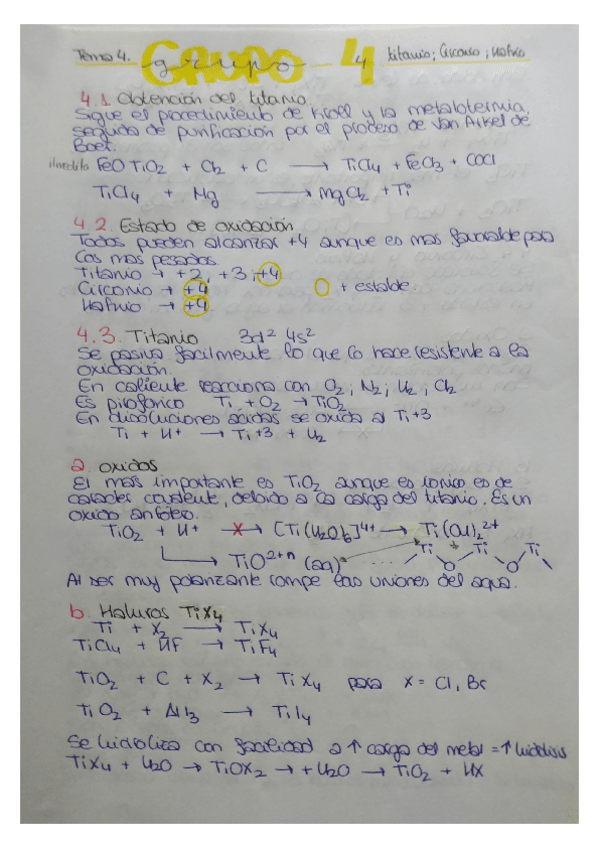 Tema 4. GRUPO 4 titanio; Circonio; Hafnio
grupo
4.1 Obtención del titanio.
Sigue el procedimiento de Kroll y la metalotermia,
seguida de purificación por el proceso de Van Arkel de
Boer.
ilmenita FeO TiO2 + Cl2 + C → TiCl4 + FeCl3 + COCl
TiCl4 + Mg → MgCl2 + Ti
4.2. Estado de oxidación
Todos pueden alcanzar +4 aunque es mas favorable para
los mas pesados.
Titanio → +2, +3, +4
Circonio → +4 + estable.
Hafnio → +4
4.3. Titanio 3d² 4s²
Se pasiva facilmente, lo que lo hace resistente a la
oxidación.
En caliente reacciona con O2, N2, H2, Cl2
Es piroforico Ti + O2 → TiO2
En disoluciones ácidas se oxida a Ti+3
Ti + H+ → Ti+3 + H2
a. oxidos
El mas importante es TiO2 aunque es ionico es de
caracter covalente, debido a la carga del titanio. Es un
oxido anfótero.
TiO2 + H+ ✗→ [Ti(H2O)6]4+ → Ti(OH)2 2+
→ TiO2+n (aq) Ti O Ti O Ti
Al ser muy polarizante rompe las uniones del agua.
b. Haluros TiX4
Ti + X2 → TiX4
TiCl4 + HF → TiF4
TiO2 + C + X2 → TiX4 para X = Cl, Br
TiO2 + AlI3 → TiI4
Se hidroliza con facilidad a ↑ carga del metal = ↑ hidrolisis
TiX4 + H2O → TiOX2 → + H2O → TiO2 + HX